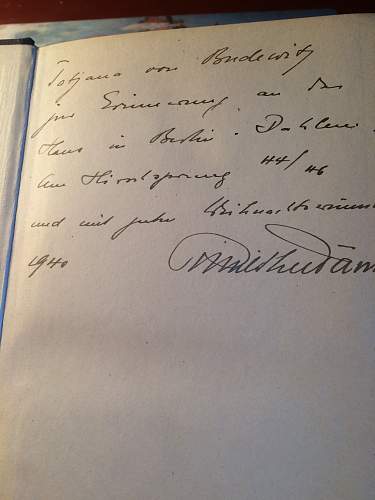 Tatjana von Budewitz
zur Erinnerung an das
Haus in Berlin-Dahlem.
Am Hirschsprung 44/46
und mit guten
1940